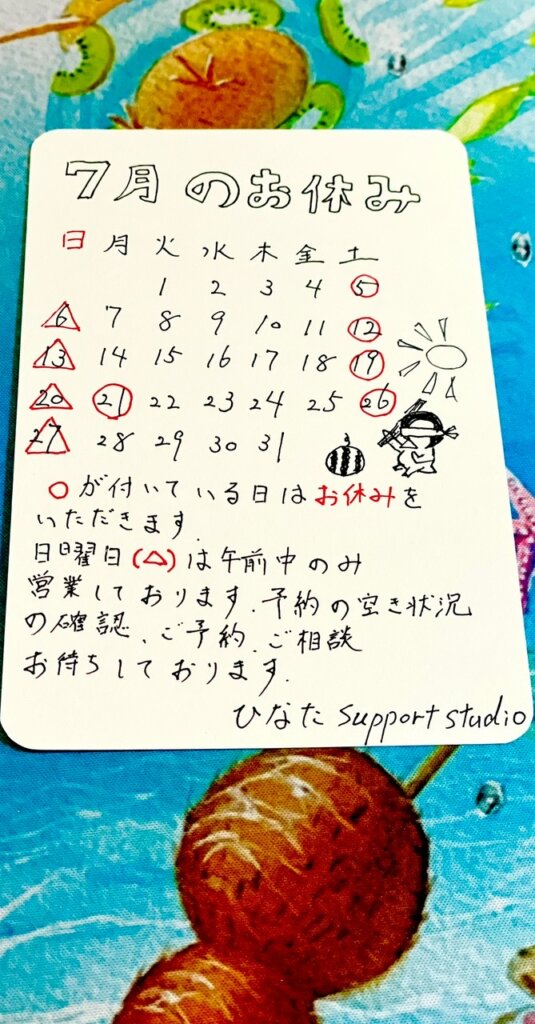 7月のお休み
日 月 火 水 木 金 土
1 2 3 4 5
6 7 8 9 10 11 12
13 14 15 16 17 18 19
20 21 22 23 24 25 26
27 28 29 30 31
○が付いている日はお休みを
いただきます.
日曜日(△)は午前中のみ
営業しております.予約の空き状況
の確認、ご予約.ご相談
お待ちしております.
ひなた support studio